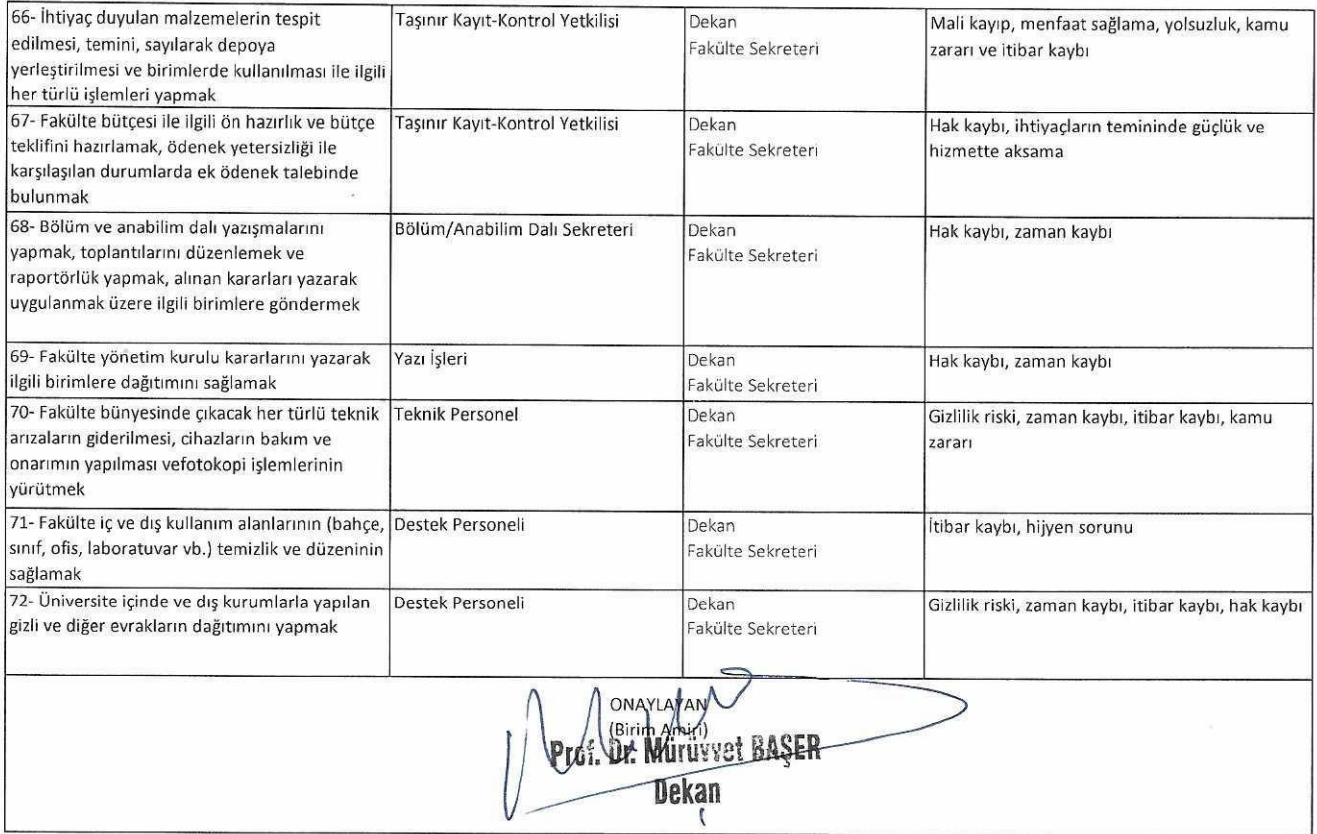 66- İhtiyaç duyulan malzemelerin tespit
edilmesi, temini, sayılarak depoya
yerleştirilmesi ve birimlerde kullanılması ile ilgili
her türlü işlemleri yapmak
Taşınır Kayıt-Kontrol Yetkilisi
Dekan
Fakülte Sekreteri
Mali kayıp, menfaat sağlama, yolsuzluk, kamu
zararı ve itibar kaybı
67- Fakülte bütçesi ile ilgili ön hazırlık ve bütçe
teklifini hazırlamak, ödenek yetersizliği ile
karşılaşılan durumlarda ek ödenek talebinde
bulunmak
Taşınır Kayıt-Kontrol Yetkilisi
Dekan
Fakülte Sekreteri
Hak kaybı, ihtiyaçların temininde güçlük ve
hizmette aksama
68- Bölüm ve anabilim dalı yazışmalarını
yapmak, toplantılarını düzenlemek ve
raportörlük yapmak, alınan kararları yazarak
uygulanmak üzere ilgili birimlere göndermek
Bölüm/Anabilim Dalı Sekreteri
Dekan
Fakülte Sekreteri
Hak kaybı, zaman kaybı
69- Fakülte yönetim kurulu kararlarını yazarak
ilgili birimlere dağıtımını sağlamak
Yazı İşleri
Dekan
Fakülte Sekreteri
Hak kaybı, zaman kaybı
70- Fakülte bünyesinde çıkacak her türlü teknik
arızaların giderilmesi, cihazların bakım ve
onarımın yapılması vefotokopi işlemlerinin
yürütmek
Teknik Personel
Dekan
Fakülte Sekreteri
Gizlilik riski, zaman kaybı, itibar kaybı, kamu
zararı
71- Fakülte iç ve dış kullanım alanlarının (bahçe,
sınıf, ofis, laboratuvar vb.) temizlik ve düzeninin
sağlamak
Destek Personeli
Dekan
Fakülte Sekreteri
İtibar kaybı, hijyen sorunu
72- Üniversite içinde ve dış kurumlarla yapılan
gizli ve diğer evrakların dağıtımını yapmak
Destek Personeli
Dekan
Fakülte Sekreteri
Gizlilik riski, zaman kaybı, itibar kaybı, hak kaybı
ONAYLAYAN
(Birim Amiri)
Prof. Dr. Mürüvvet BAŞER
Dekan